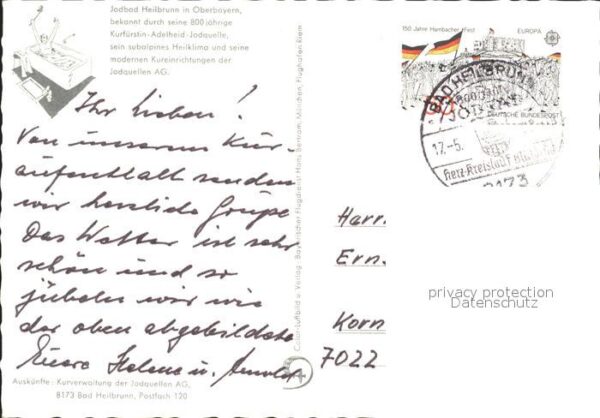 Jodbad Heilbrunn in Oberbayern,
bekannt durch seine 800 jährige
Kurfürstin-Adelheid-Jodquelle,
sein subalpines Heilklima und seine
modernen Kureinrichtungen der
Jodquellen AG.
Ihr Lieben!
Von unserem Kur-
aufenthalt senden
wir herzliche Grüße
Das Wetter ist sehr
schön und so
jubeln wir wie
der oben abgebildete
Eure Helene u.
Auskünfte: Kurverwaltung der Jodquellen AG,
8173 Bad Heilbrunn, Postfach 120
Color-Luftbild u. Verlag: Bayerischer Flugdienst Hans Bertram, München, Flughafen Riem
150 Jahre Hambacher Fest
EUROPA
DEUTSCHE BUNDESPOST
BAD HEILBRUNN
17.-5.
8173
Herr
Ern
Korn
7022
privacy protection
Datenschutz